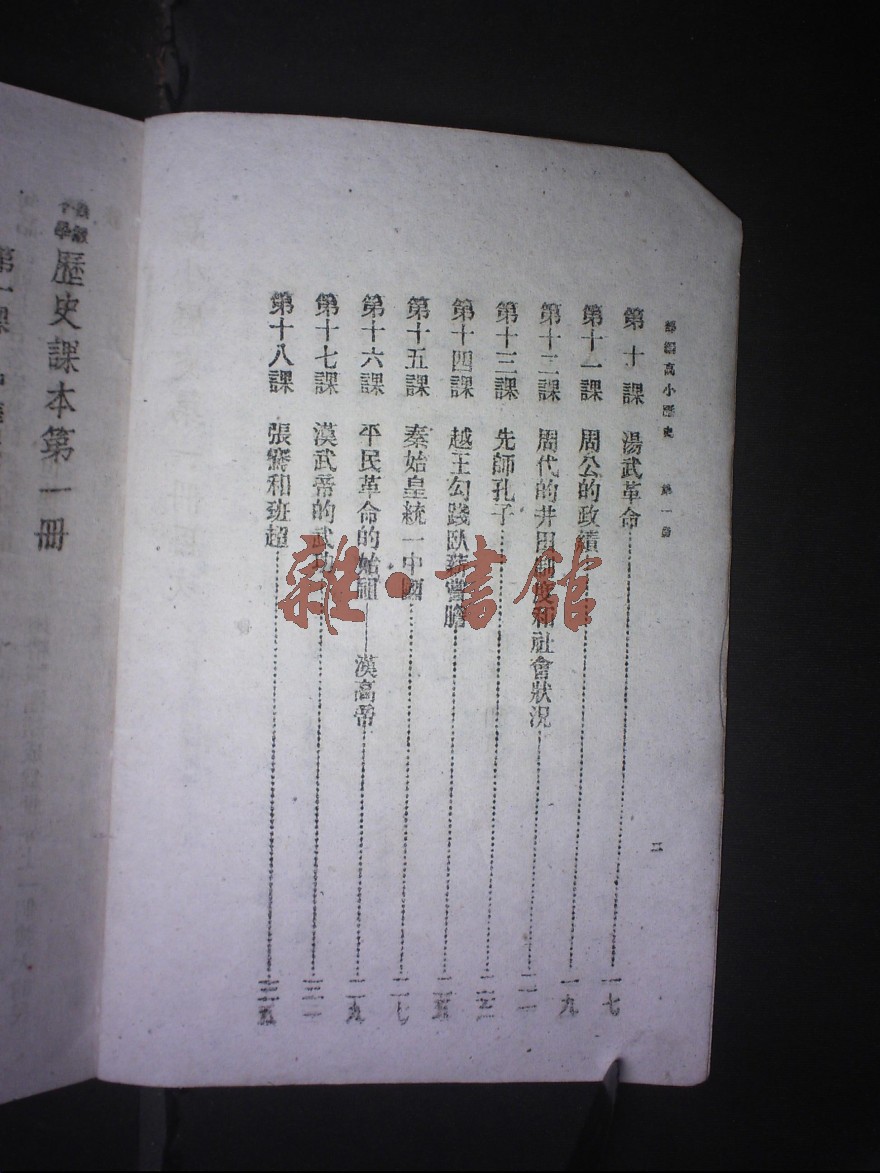 部編高小歷史 第一册
二
第十課 湯武革命 一七
第十一課 周公的政績 一九
第十二課 周代的井田制度和社會狀况 二一
第十三課 先師孔子 二三
第十四課 越王勾踐臥薪嘗膽 二五
第十五課 秦始皇統一中國 二七
第十六課 平民革命的始祖——漢高帝 二九
第十七課 漢武帝的武功 三二
第十八課 張騫和班超 三五
高級小學 歷史課本第一冊
第一課
雜·書館